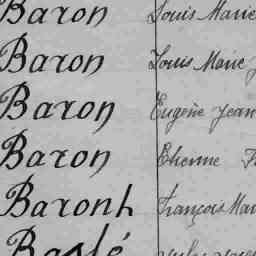 Baron Louis Marie
Baron Louis Marie J
Baron Eugène Jean
Baron Etienne F
Baronh François Mar
Baslé Jules